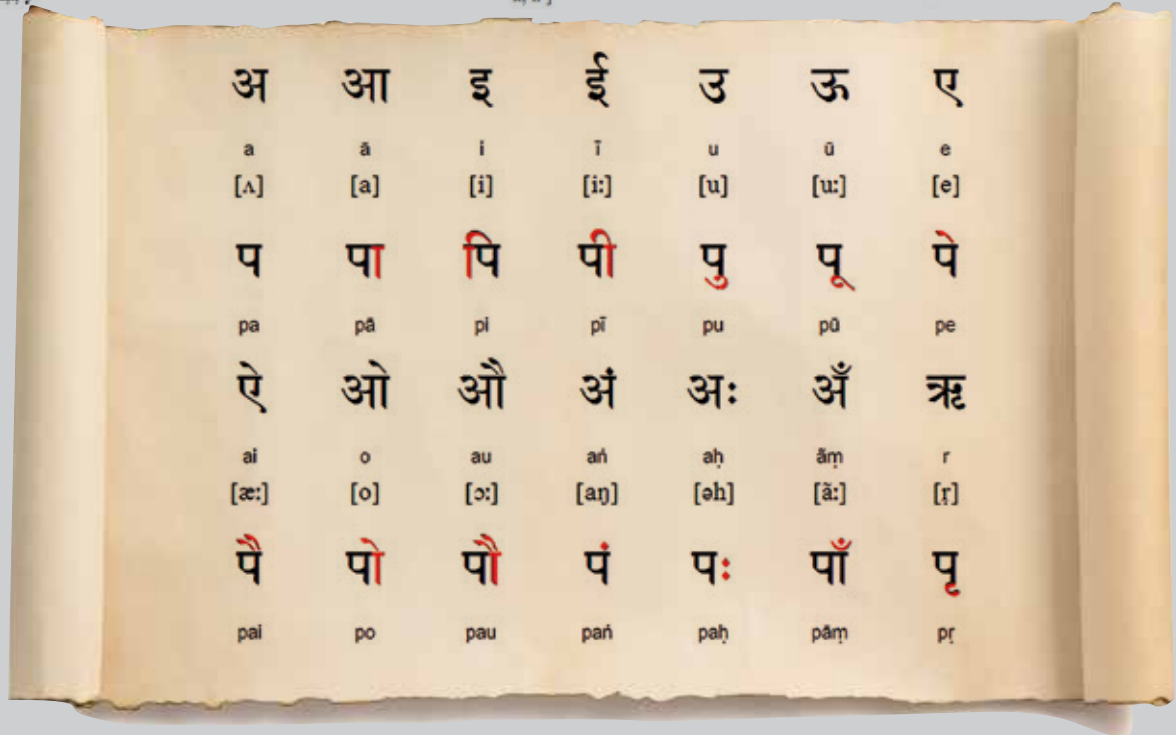 अ आ इ ई उ ऊ ए
a ā i ī u ū e
[ʌ] [a] [i] [i:] [u] [u:] [e]
प पा पि पी पु पू पे
pa pā pi pī pu pū pe
ऐ ओ औ अं अः अँ ऋ
ai o au aṅ aḥ ãṃ r
[æ:] [o] [ɔ:] [aŋ] [əh] [ã:] [ṛ]
पै पो पौ पं पः पाँ पृ
pai po pau paṅ paḥ pāṃ pṛ